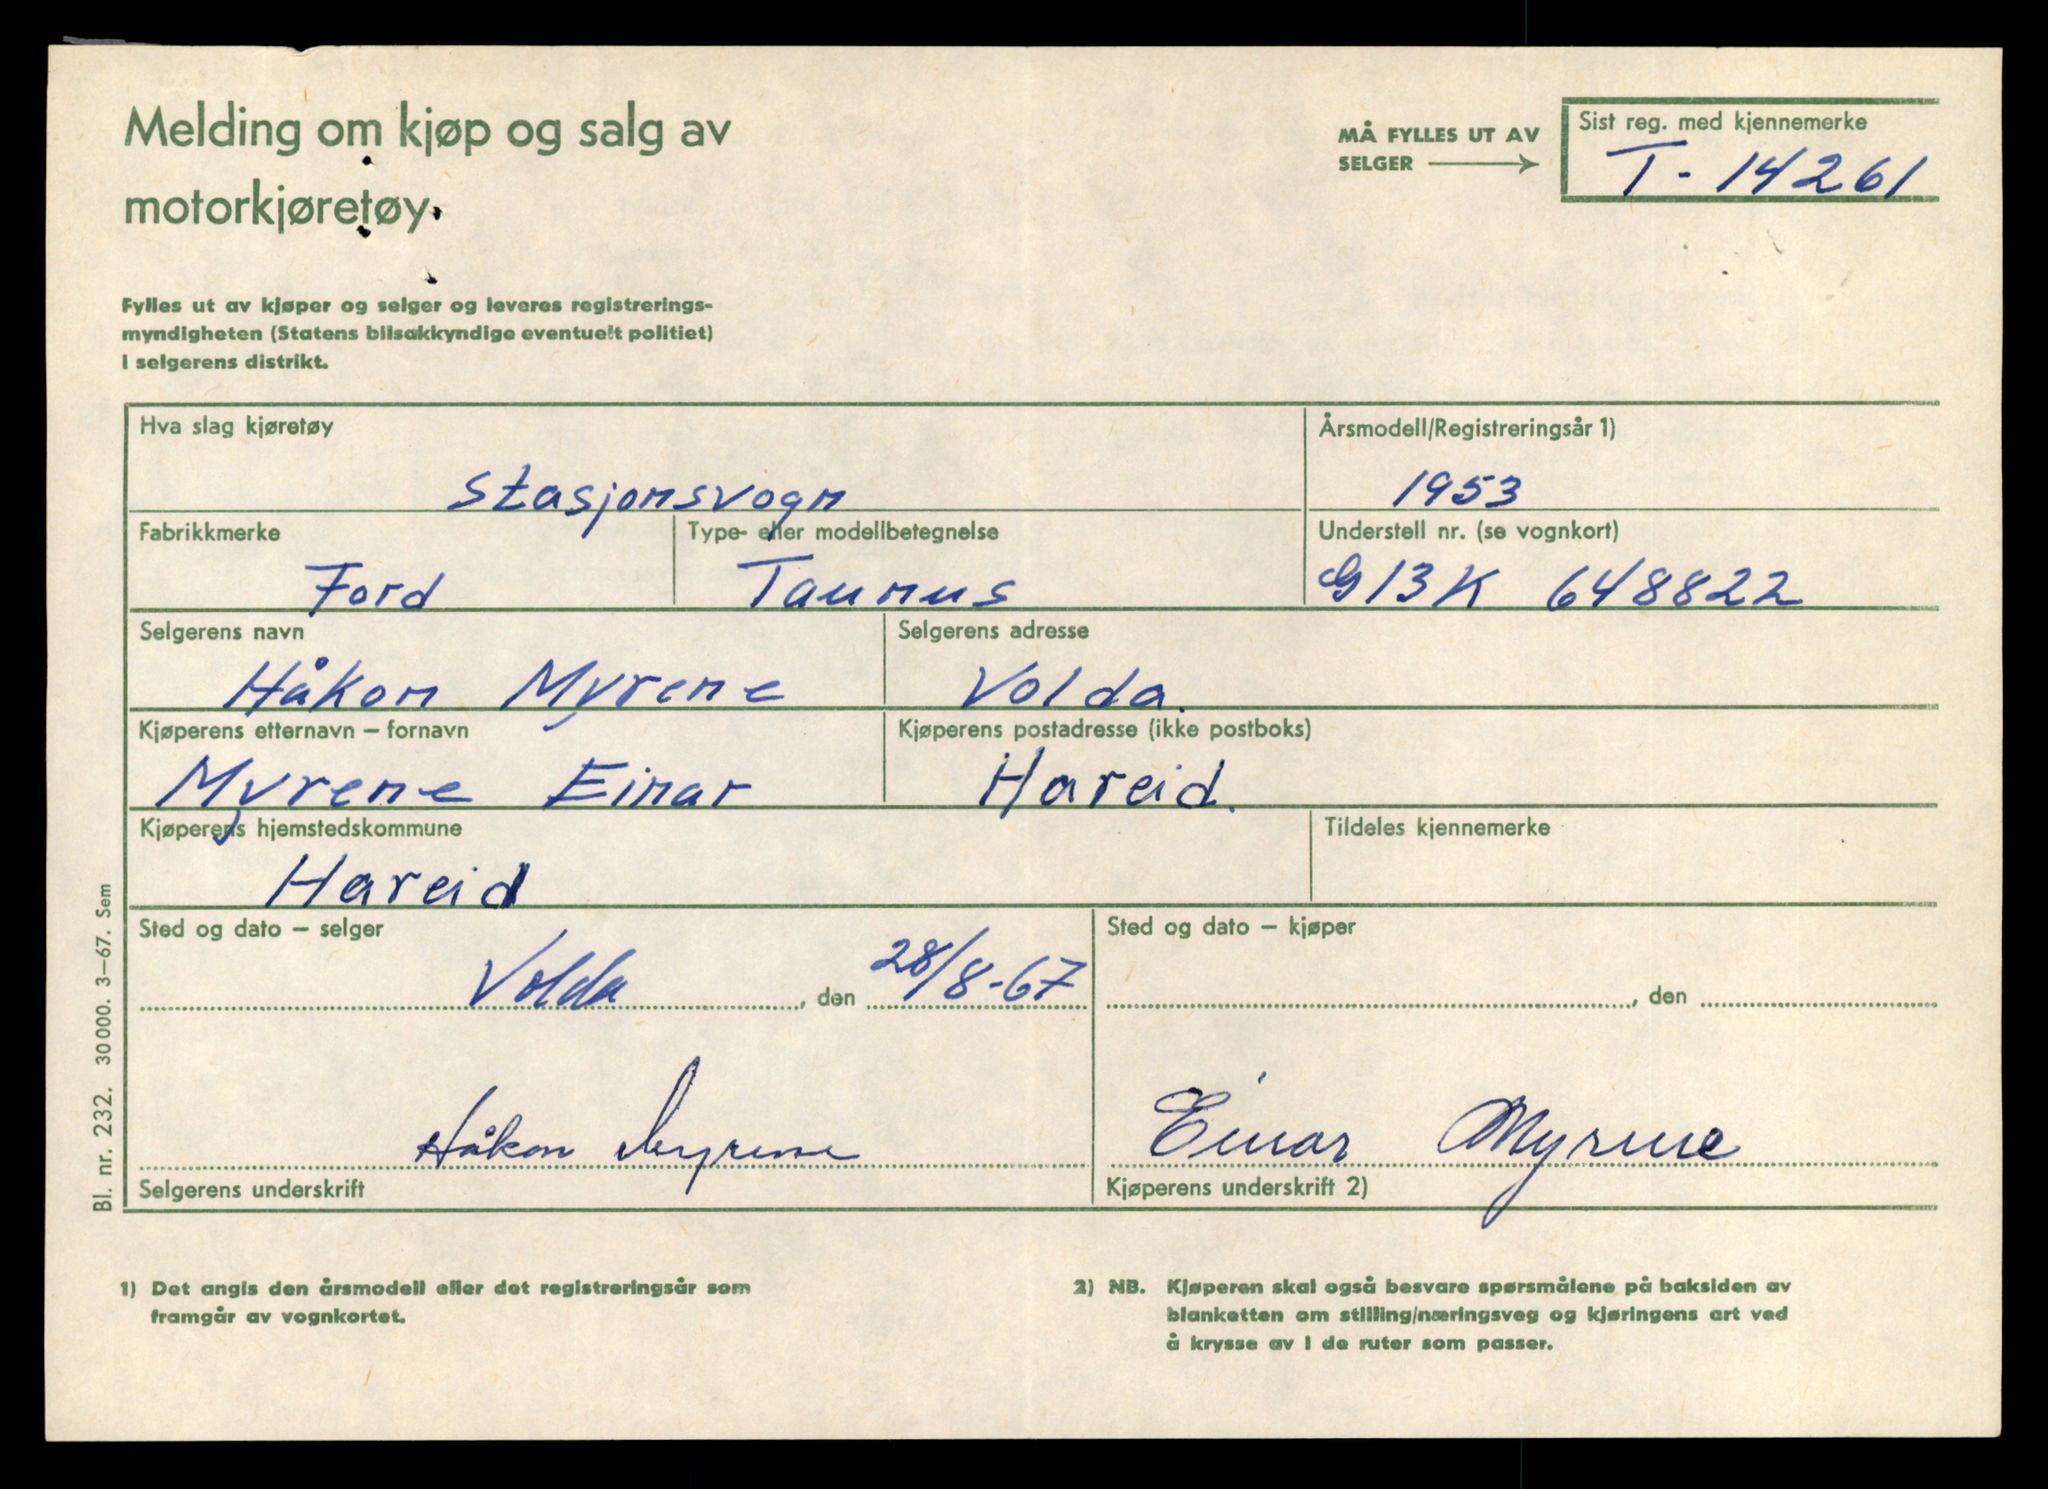 Melding om kjøp og salg av
motorkjøretøy
MÅ FYLLES UT AV
SELGER
Sist reg. med kjennemerke
T - 14261
Fylles ut av kjøper og selger og leveres registrerings-
myndigheten (Statens bilsakkyndige eventuelt politiet)
i selgerens distrikt.
Hva slag kjøretøy
Stasjonsvogn
Årsmodell/Registreringsår 1)
1953
Fabrikkmerke
Ford
Type- eller modellbetegnelse
Taunus
Understell nr. (se vognkort)
G13K 648822
Selgerens navn
Håkon Myrene
Selgerens adresse
Volda.
Kjøperens etternavn – fornavn
Myrene Einar
Kjøperens postadresse (ikke postboks)
Hareid.
Kjøperens hjemstedskommune
Hareid
Tildeles kjennemerke
Sted og dato – selger
Volda, den 28/8-67
Sted og dato – kjøper
, den
Håkon Myrene
Selgerens underskrift
Einar Myrene
Kjøperens underskrift 2)
Bl. nr. 232. 30 000. 3–67. Sem
1) Det angis den årsmodell eller det registreringsår som
framgår av vognkortet.
2) NB. Kjøperen skal også besvare spørsmålene på baksiden av
blanketten om stilling/næringsveg og kjøringens art ved
å krysse av i de ruter som passer.